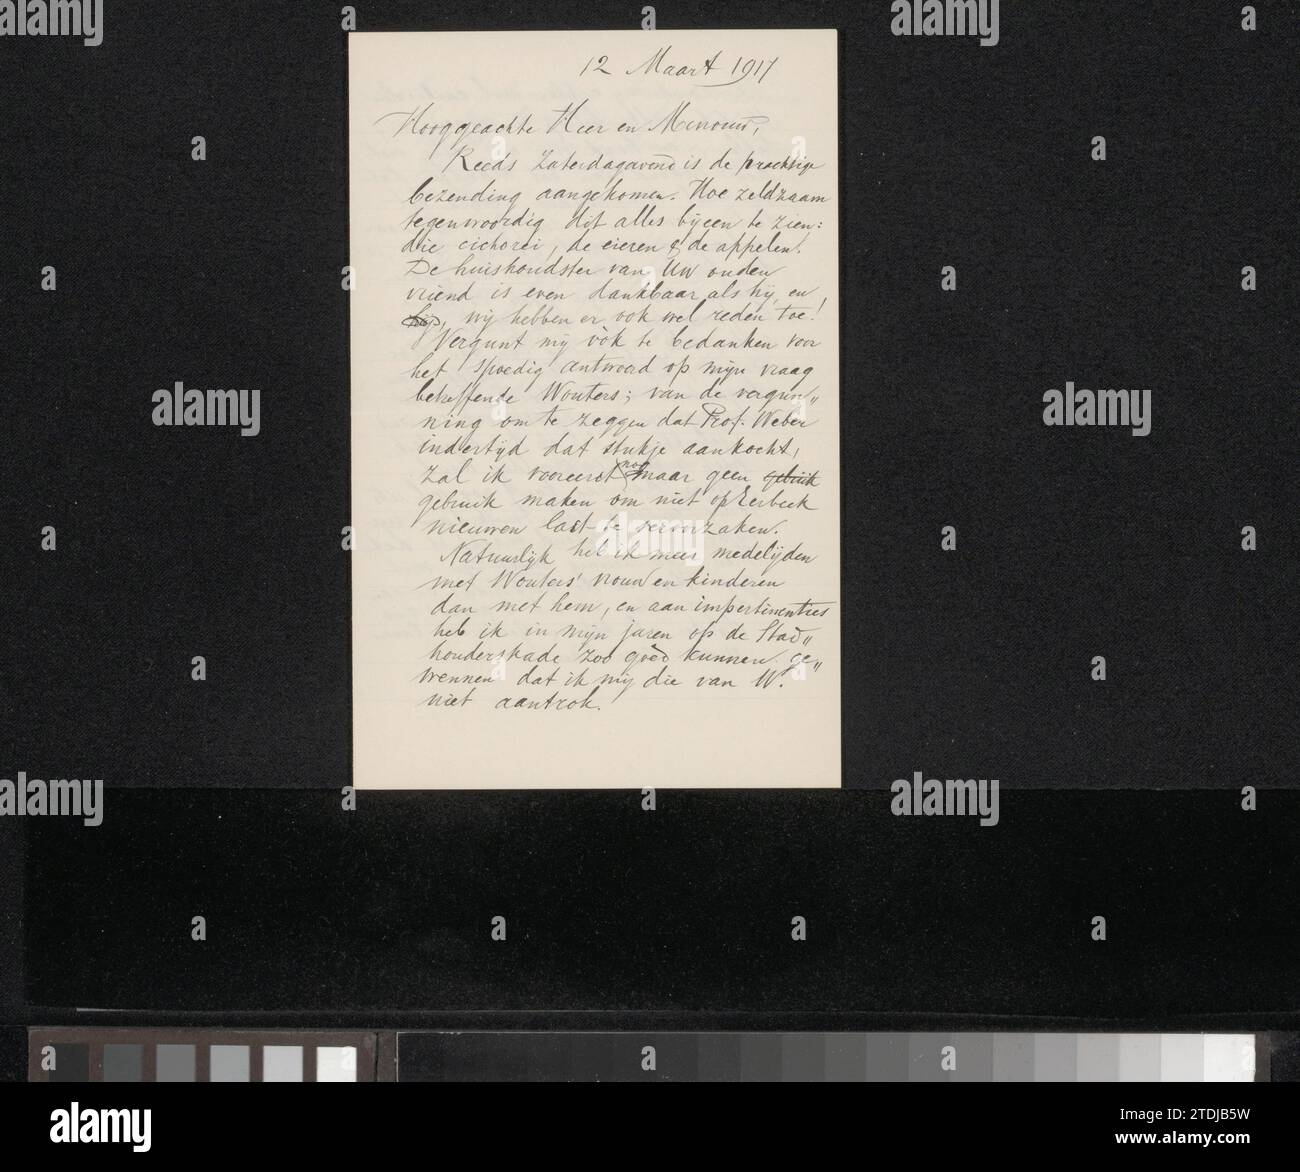 12 Maart 1917
Hooggeachte Heer en Mevrouw,
Reeds Zaterdagavond is de prachtige
bezending aangekomen. Hoe zeldzaam
tegenwoordig dit alles bijeen te zien:
die cichorei, de eieren & de appelen!
De huishoudster van Uw ouden
vriend is even dankbaar als hij, en
wij hebben er ook wel reden toe!
Vergunt mij òòk te bedanken voor
het spoedig antwoord op mijn vraag
betreffende Wouters; van de vergun„
ning om te zeggen dat Prof. Weber
indertijd dat stukje aankocht,
zal ik vooreerst nog maar geen gebruik
gebruik maken om niet op Eerbeek
nieuwen last te veroorzaken.
Natuurlijk heb ik meer medelijden
met Wouters' vrouw en kinderen
dan met hem, en aan impertinenties
heb ik in mijn jaren op de Stad„
houderskade zoo goed kunnen ge„
wennen dat ik mij die van W.
niet aantrok.
alamy
alamy
Image ID: 2TDJB5W
www.alamy.com